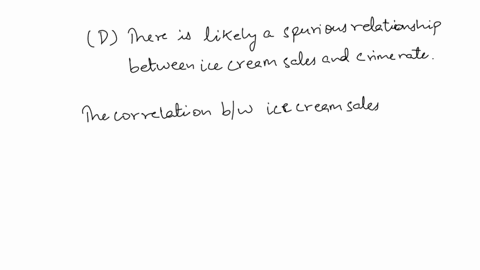 (D) There is likely a spurious relationship
between ice cream sales and crime rate.
The correlation b/w ice cream sales